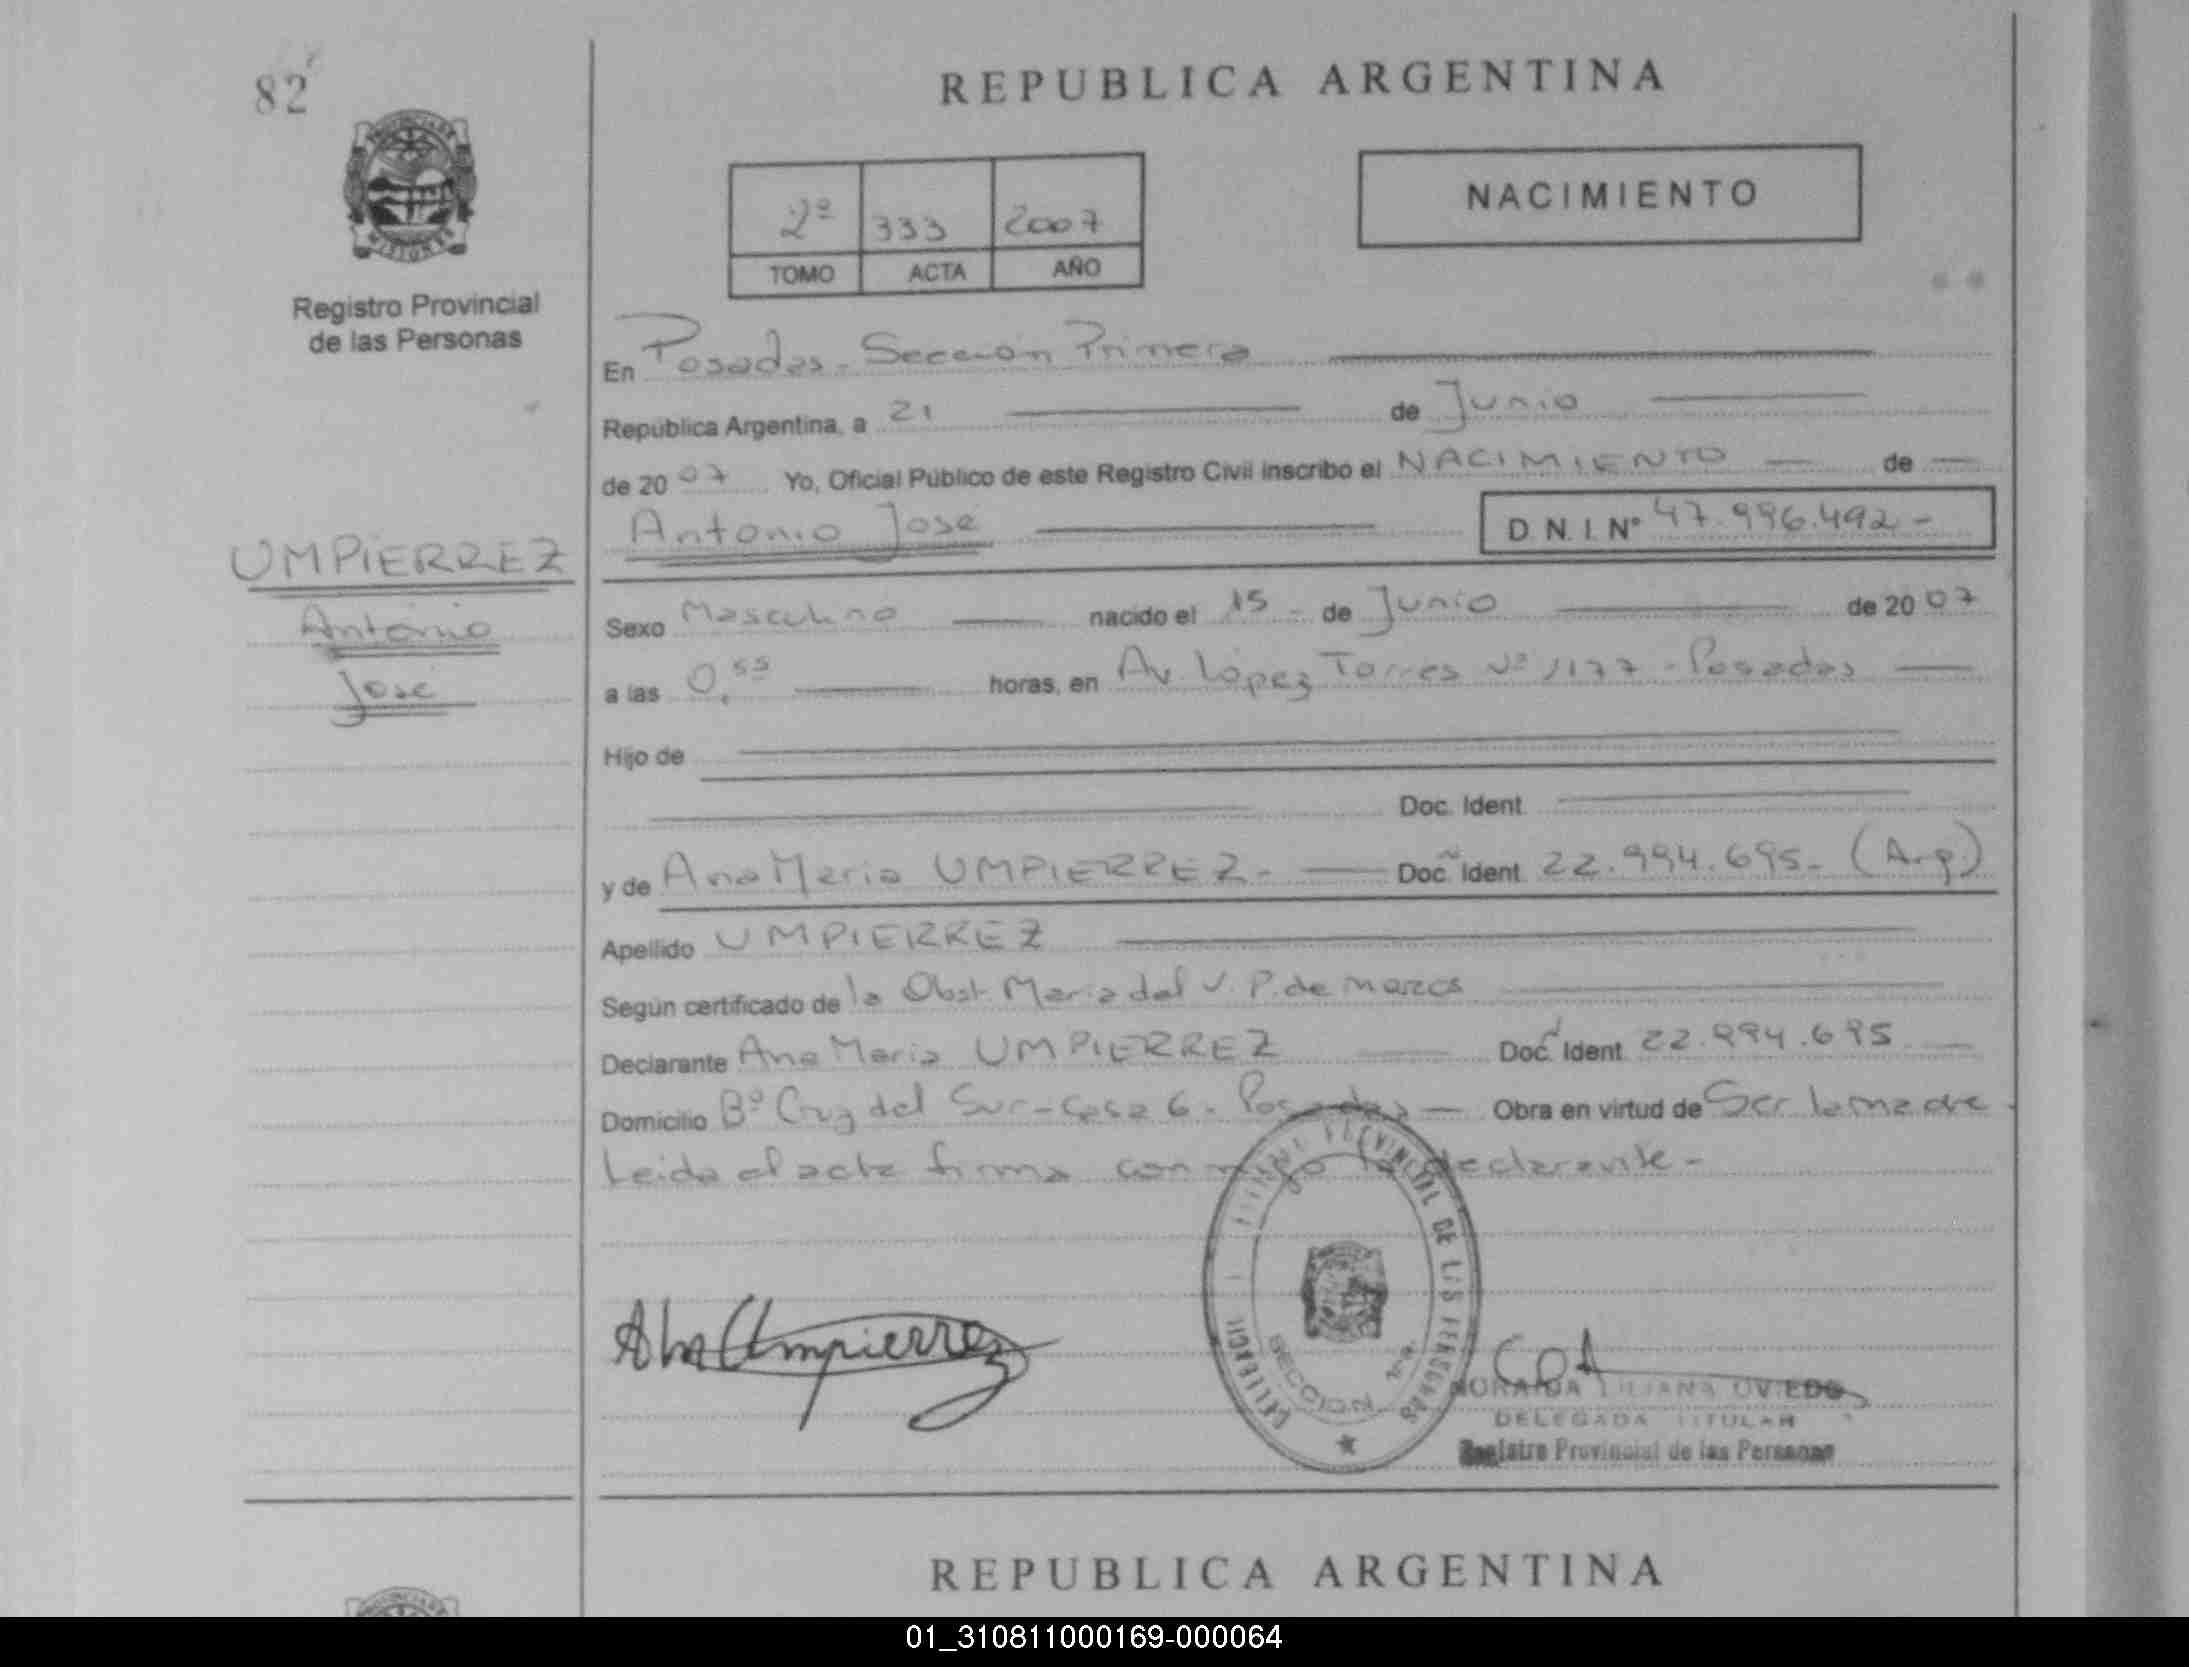 82
REPUBLICA ARGENTINA
2º 333 2007
TOMO ACTA AÑO
NACIMIENTO
Registro Provincial
de las Personas
En Posadas - Sección Primera
República Argentina, a 21 de Junio
de 2007 Yo, Oficial Público de este Registro Civil inscribo el NACIMIENTO de
Antonio José D.N.I. Nº 47.996.492-
UMPIERREZ
Antonio
José
Sexo Masculino nacido el 15 - de Junio de 2007
a las 0,55 horas, en Av. López Torres Nº 1177 - Posadas
Hijo de
Doc. Ident.
y de Ana Maria UMPIERREZ - Doc. Ident. 22.994.695- (Arg.)
Apellido UMPIERREZ
Según certificado de la Obst. Maria del V. P. de Marcos
Declarante Ana Maria UMPIERREZ Doc. Ident. 22.994.695
Domicilio Bº Cruz del Sur - Casa 6 - Posadas Obra en virtud de Ser la madre -
Leida el acta firma conmigo la declarante -
Ana Umpierrez
PROVINCIAL DE LAS PERSONAS
SECCION 1ra.
LILIANA OVIEDO
DELEGADA TITULAR
Registro Provincial de las Personas
REPUBLICA ARGENTINA
01_310811000169-000064